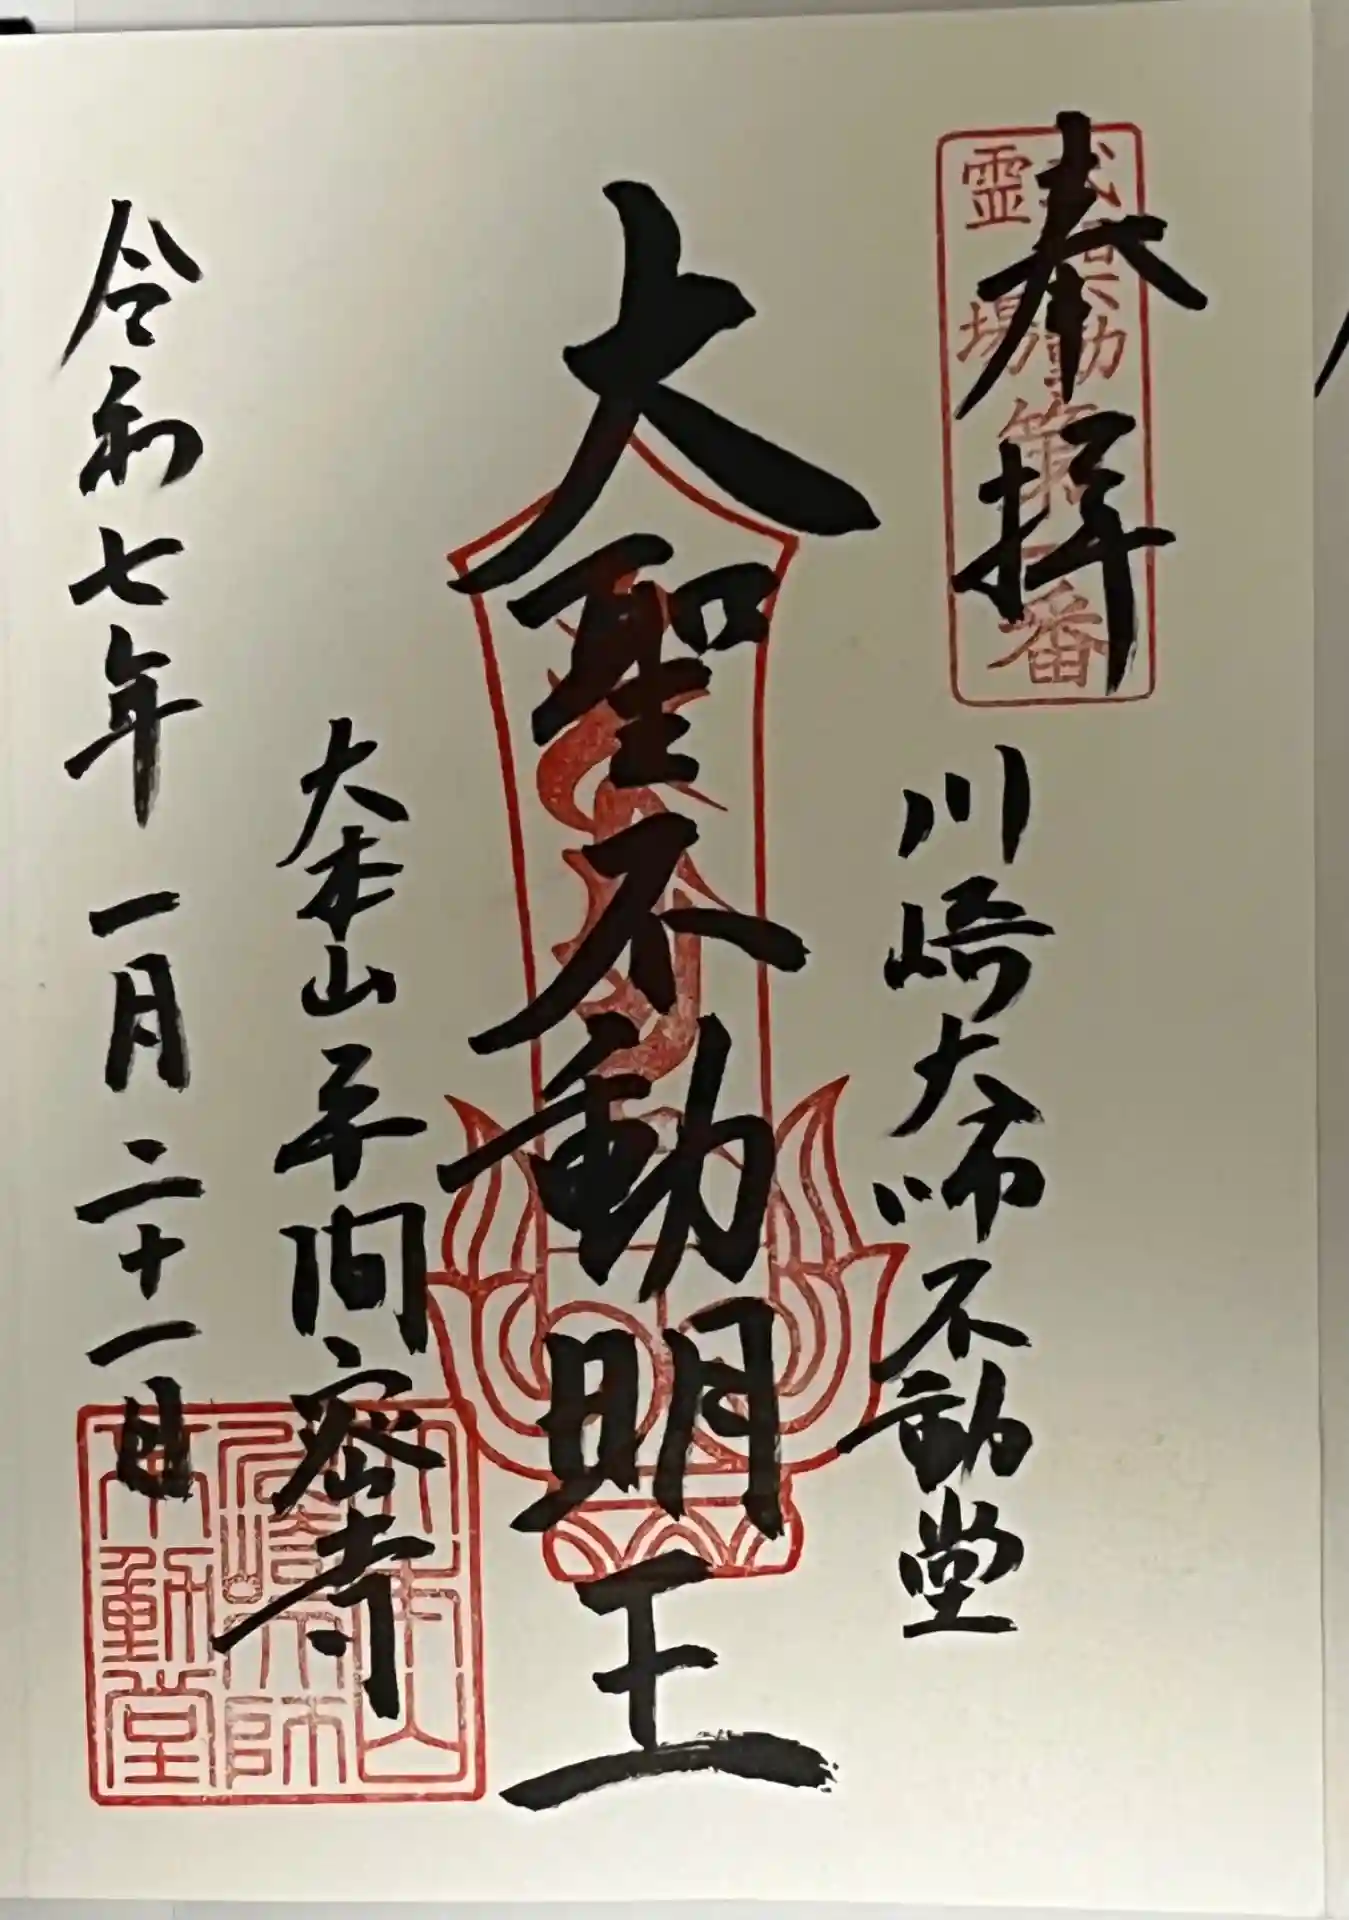 奉拝
霊場
第一番
川崎大師不動堂
大聖不動明王
大本山平間寺
令和七年一月二十一日
大本山
川崎大師
不動堂